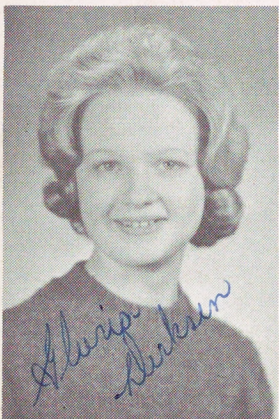 Gloria
Derksen